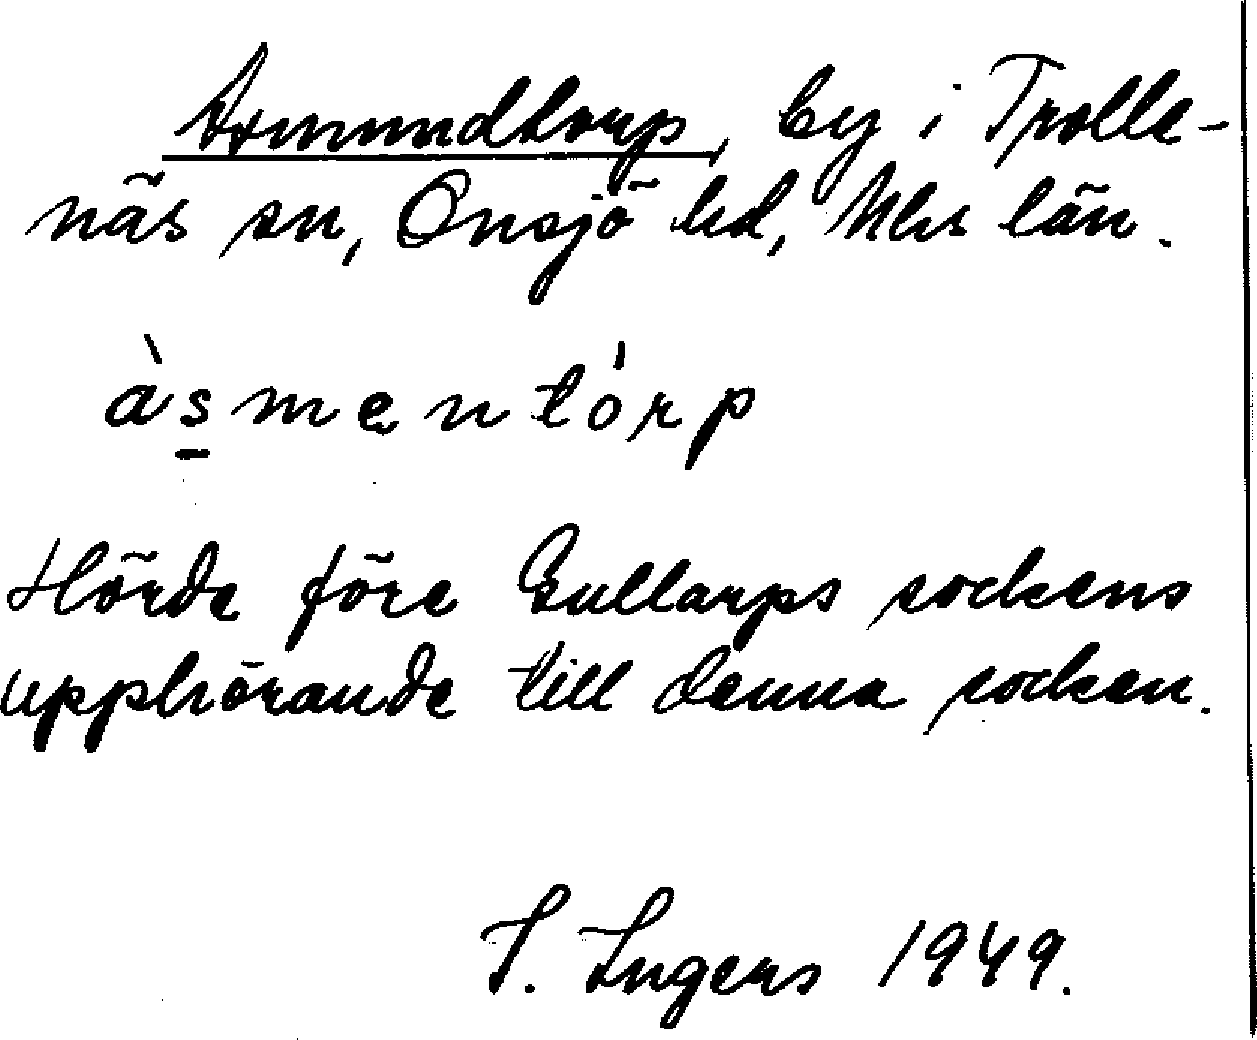 Axmundtorp, by i Trolle-
näs sn, Onsjö hd, Mhs län.
àsmentórp
Hörde före Gullarps sockens
upphörande till denna socken.
I. Ingers 1949.